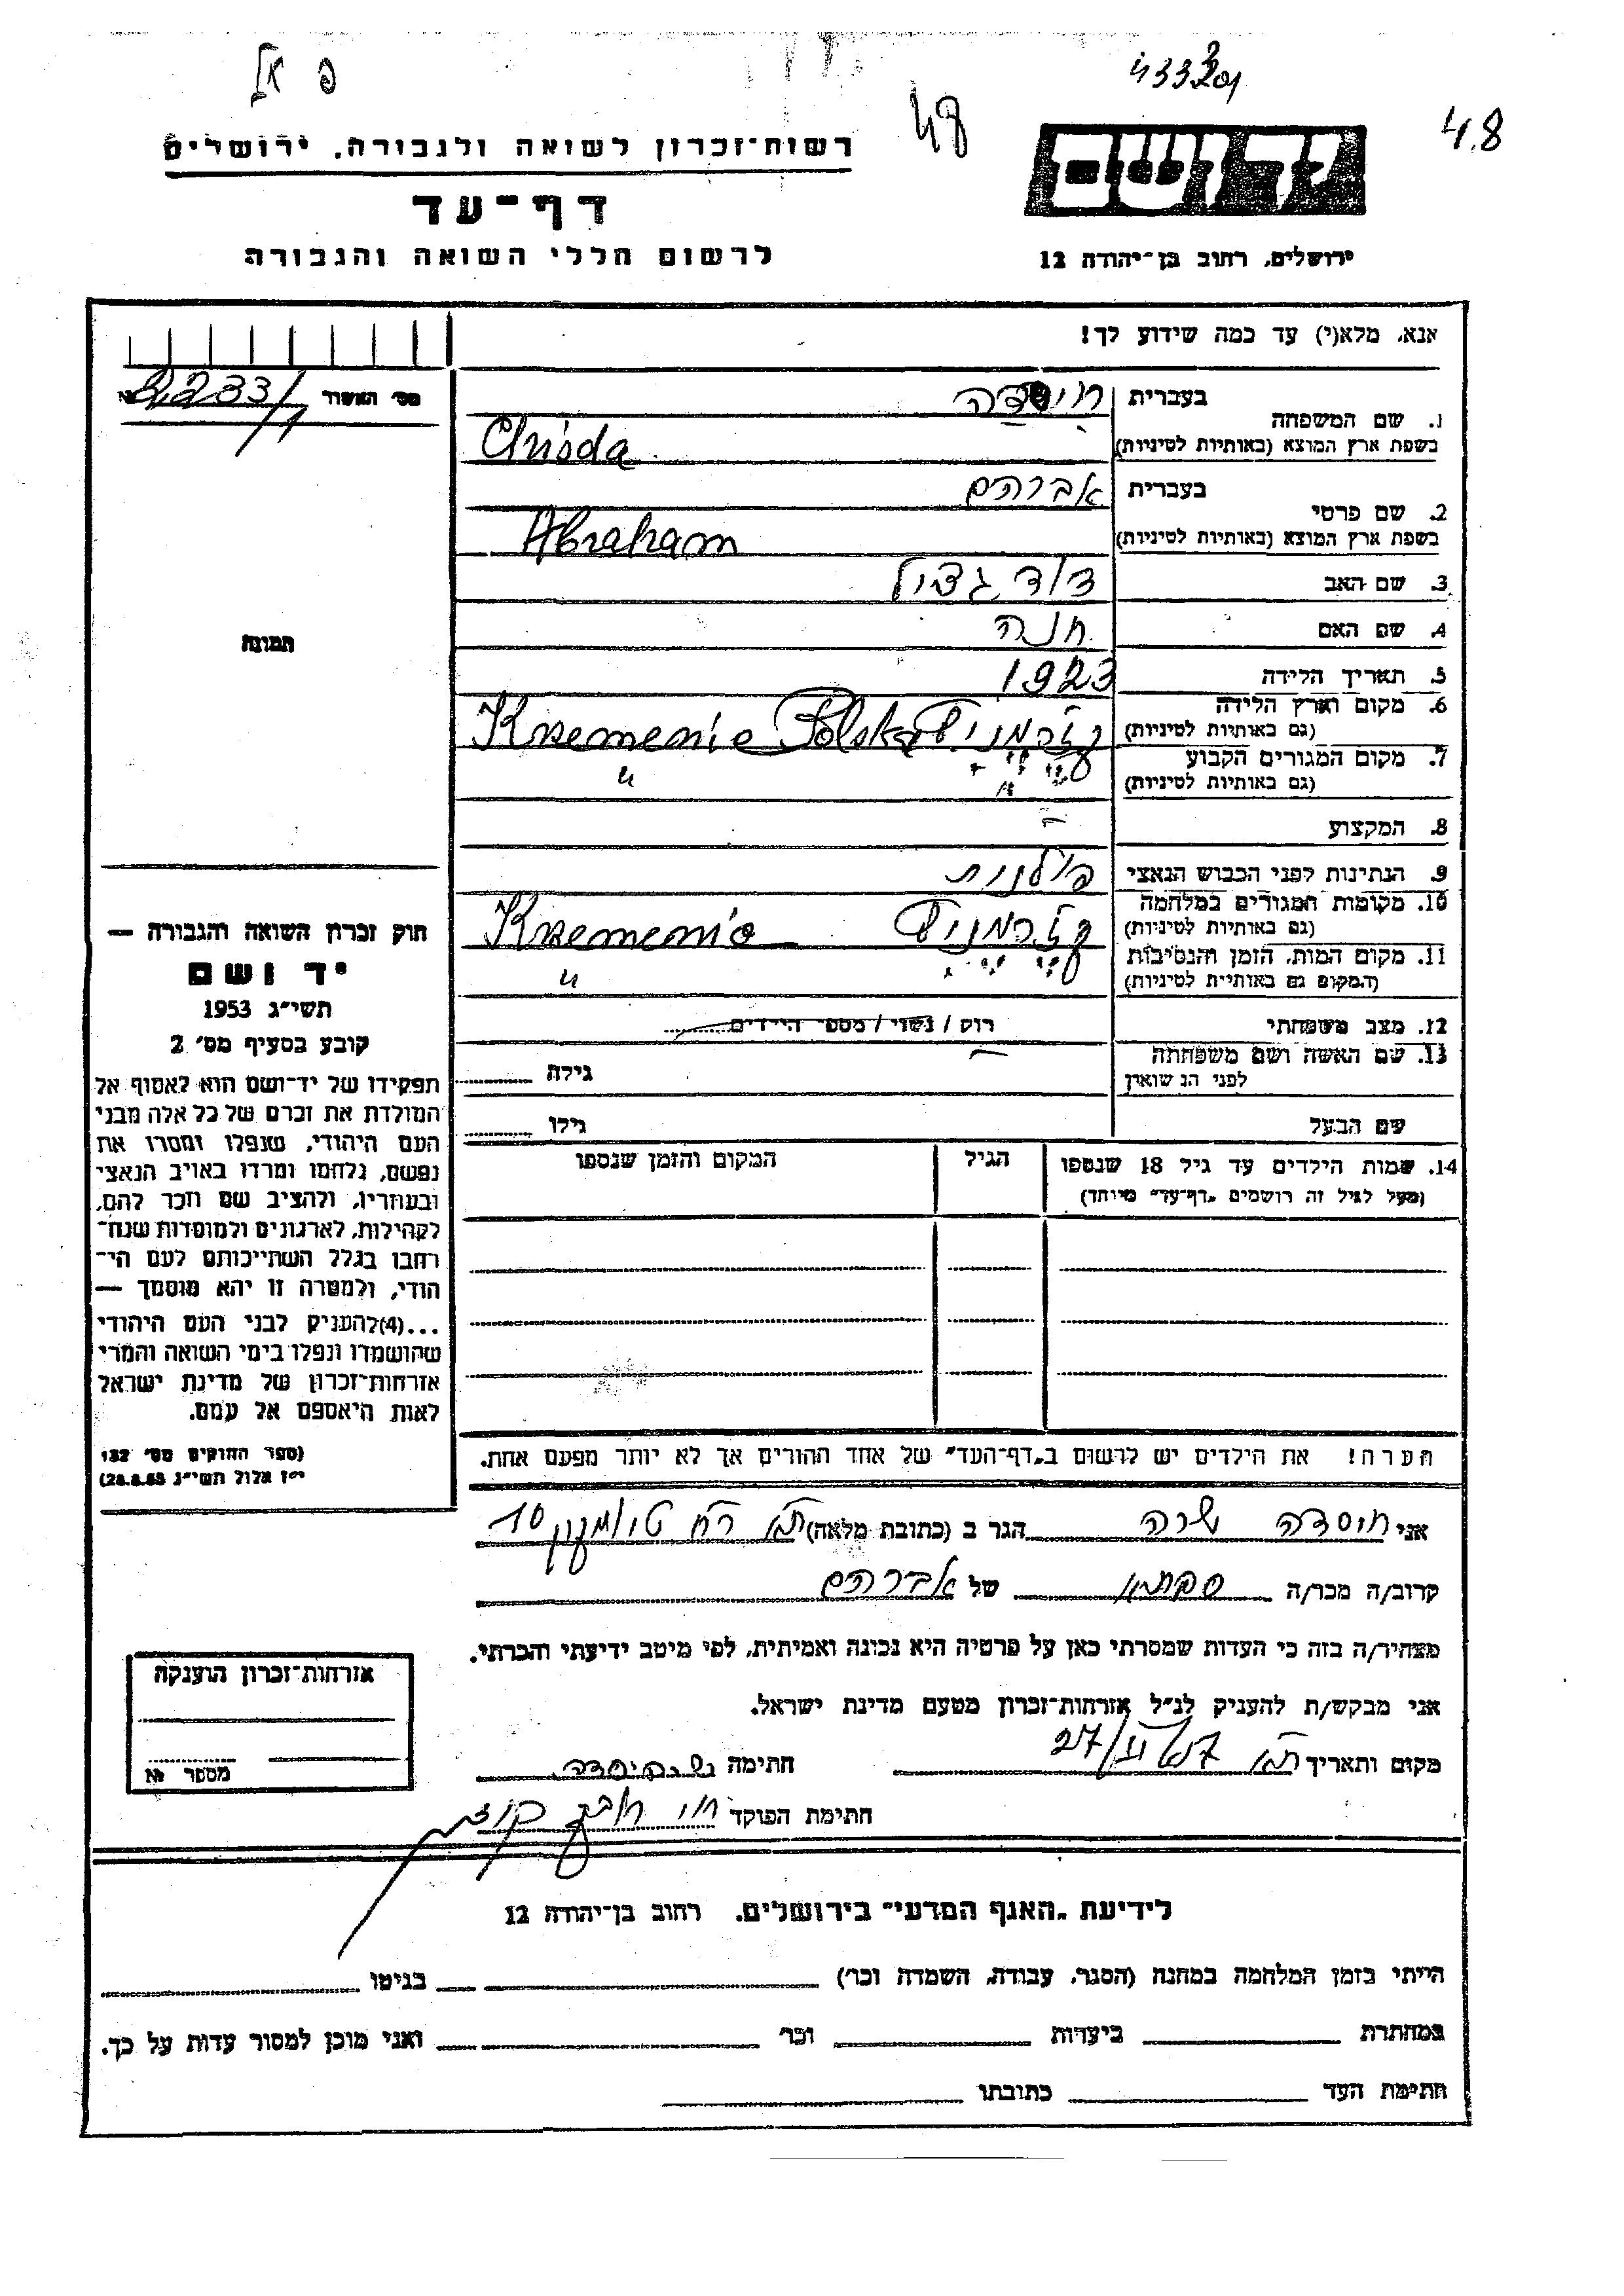 פ אל
433201
48
48
יד ושם
ירושלים, רחוב בן־יהודה 12
רשות־זכרון לשואה ולגבורה, ירושלים
דף־עד
לרשום חללי השואה והגבורה
אנא, מלא(י) עד כמה שידוע לך!
מס׳ האשור
1. שם המשפחה
בעברית
בשפת ארץ המוצא (באותיות לטיניות) Chusda
2. שם פרטי
בעברית אברהם
בשפת ארץ המוצא (באותיות לטיניות) Abraham
3. שם האב דוד
4. שם האם חנה
5. תאריך הלידה 1923
6. מקום וארץ הלידה
(גם באותיות לטיניות) Krzemenie Polska
7. מקום המגורים הקבוע
(גם באותיות לטיניות) "
8. המקצוע –
9. הנתינות לפני הכבוש הנאצי פולנית
10. מקומות המגורים במלחמה
(גם באותיות לטיניות)
11. מקום המות, הזמן והנסיבות
(המקום גם באותיות לטיניות) "
12. מצב משפחתי רוק / נשוי / מספר הילדים
13. שם האשה ושם משפחתה
לפני הנשואין גילה
שם הבעל גילו
14. שמות הילדים עד גיל 18 שנספו הגיל המקום והזמן שנספו
(מעל לגיל זה רושמים „דף־עד" מיוחד)
הערה! את הילדים יש לרשום ב„דף־העד" של אחד ההורים אך לא יותר מפעם אחת.
תמונה
חוק זכרון השואה והגבורה —
יד ושם
תשי״ג 1953
קובע בסעיף מס׳ 2
תפקידו של יד־ושם הוא לאסוף אל
המולדת את זכרם של כל אלה מבני
העם היהודי, שנפלו ומסרו את
נפשם, נלחמו ומרדו באויב הנאצי
ובעוזריו, ולהציב שם וזכר להם,
לקהילות, לארגונים ולמוסדות שנח־
רבו בגלל השתייכותם לעם הי־
הודי, ולמטרה זו יהא מוסמך —
...(4)להעניק לבני העם היהודי
שהושמדו ונפלו בימי השואה והמרי
אזרחות־זכרון של מדינת ישראל
לאות היאספם אל עמם.
(ספר החוקים מס׳ 132
י״ז אלול תשי״ג 28.8.53)
אני חוסדה שרה הגר ב (כתובת מלאה) ת״א רח׳ 10
קרוב/ה מכר/ה של אברהם
מצהיר/ה בזה כי העדות שמסרתי כאן על פרטיה היא נכונה ואמיתית, לפי מיטב ידיעתי והכרתי.
אני מבקש/ת להעניק לנ״ל אזרחות־זכרון מטעם מדינת ישראל.
מקום ותאריך ת״א חתימה
חתימת הפוקד
אזרחות־זכרון הוענקה
מספר №
לידיעת „האגף המדעי" בירושלים, רחוב בן־יהודה 12
הייתי בזמן המלחמה במחנה (הסגר, עבודה, השמדה וכו׳) בגיטו
במחתרת ביערות וכו׳ ואני מוכן למסור עדות על כך.
חתימת העד כתובתו